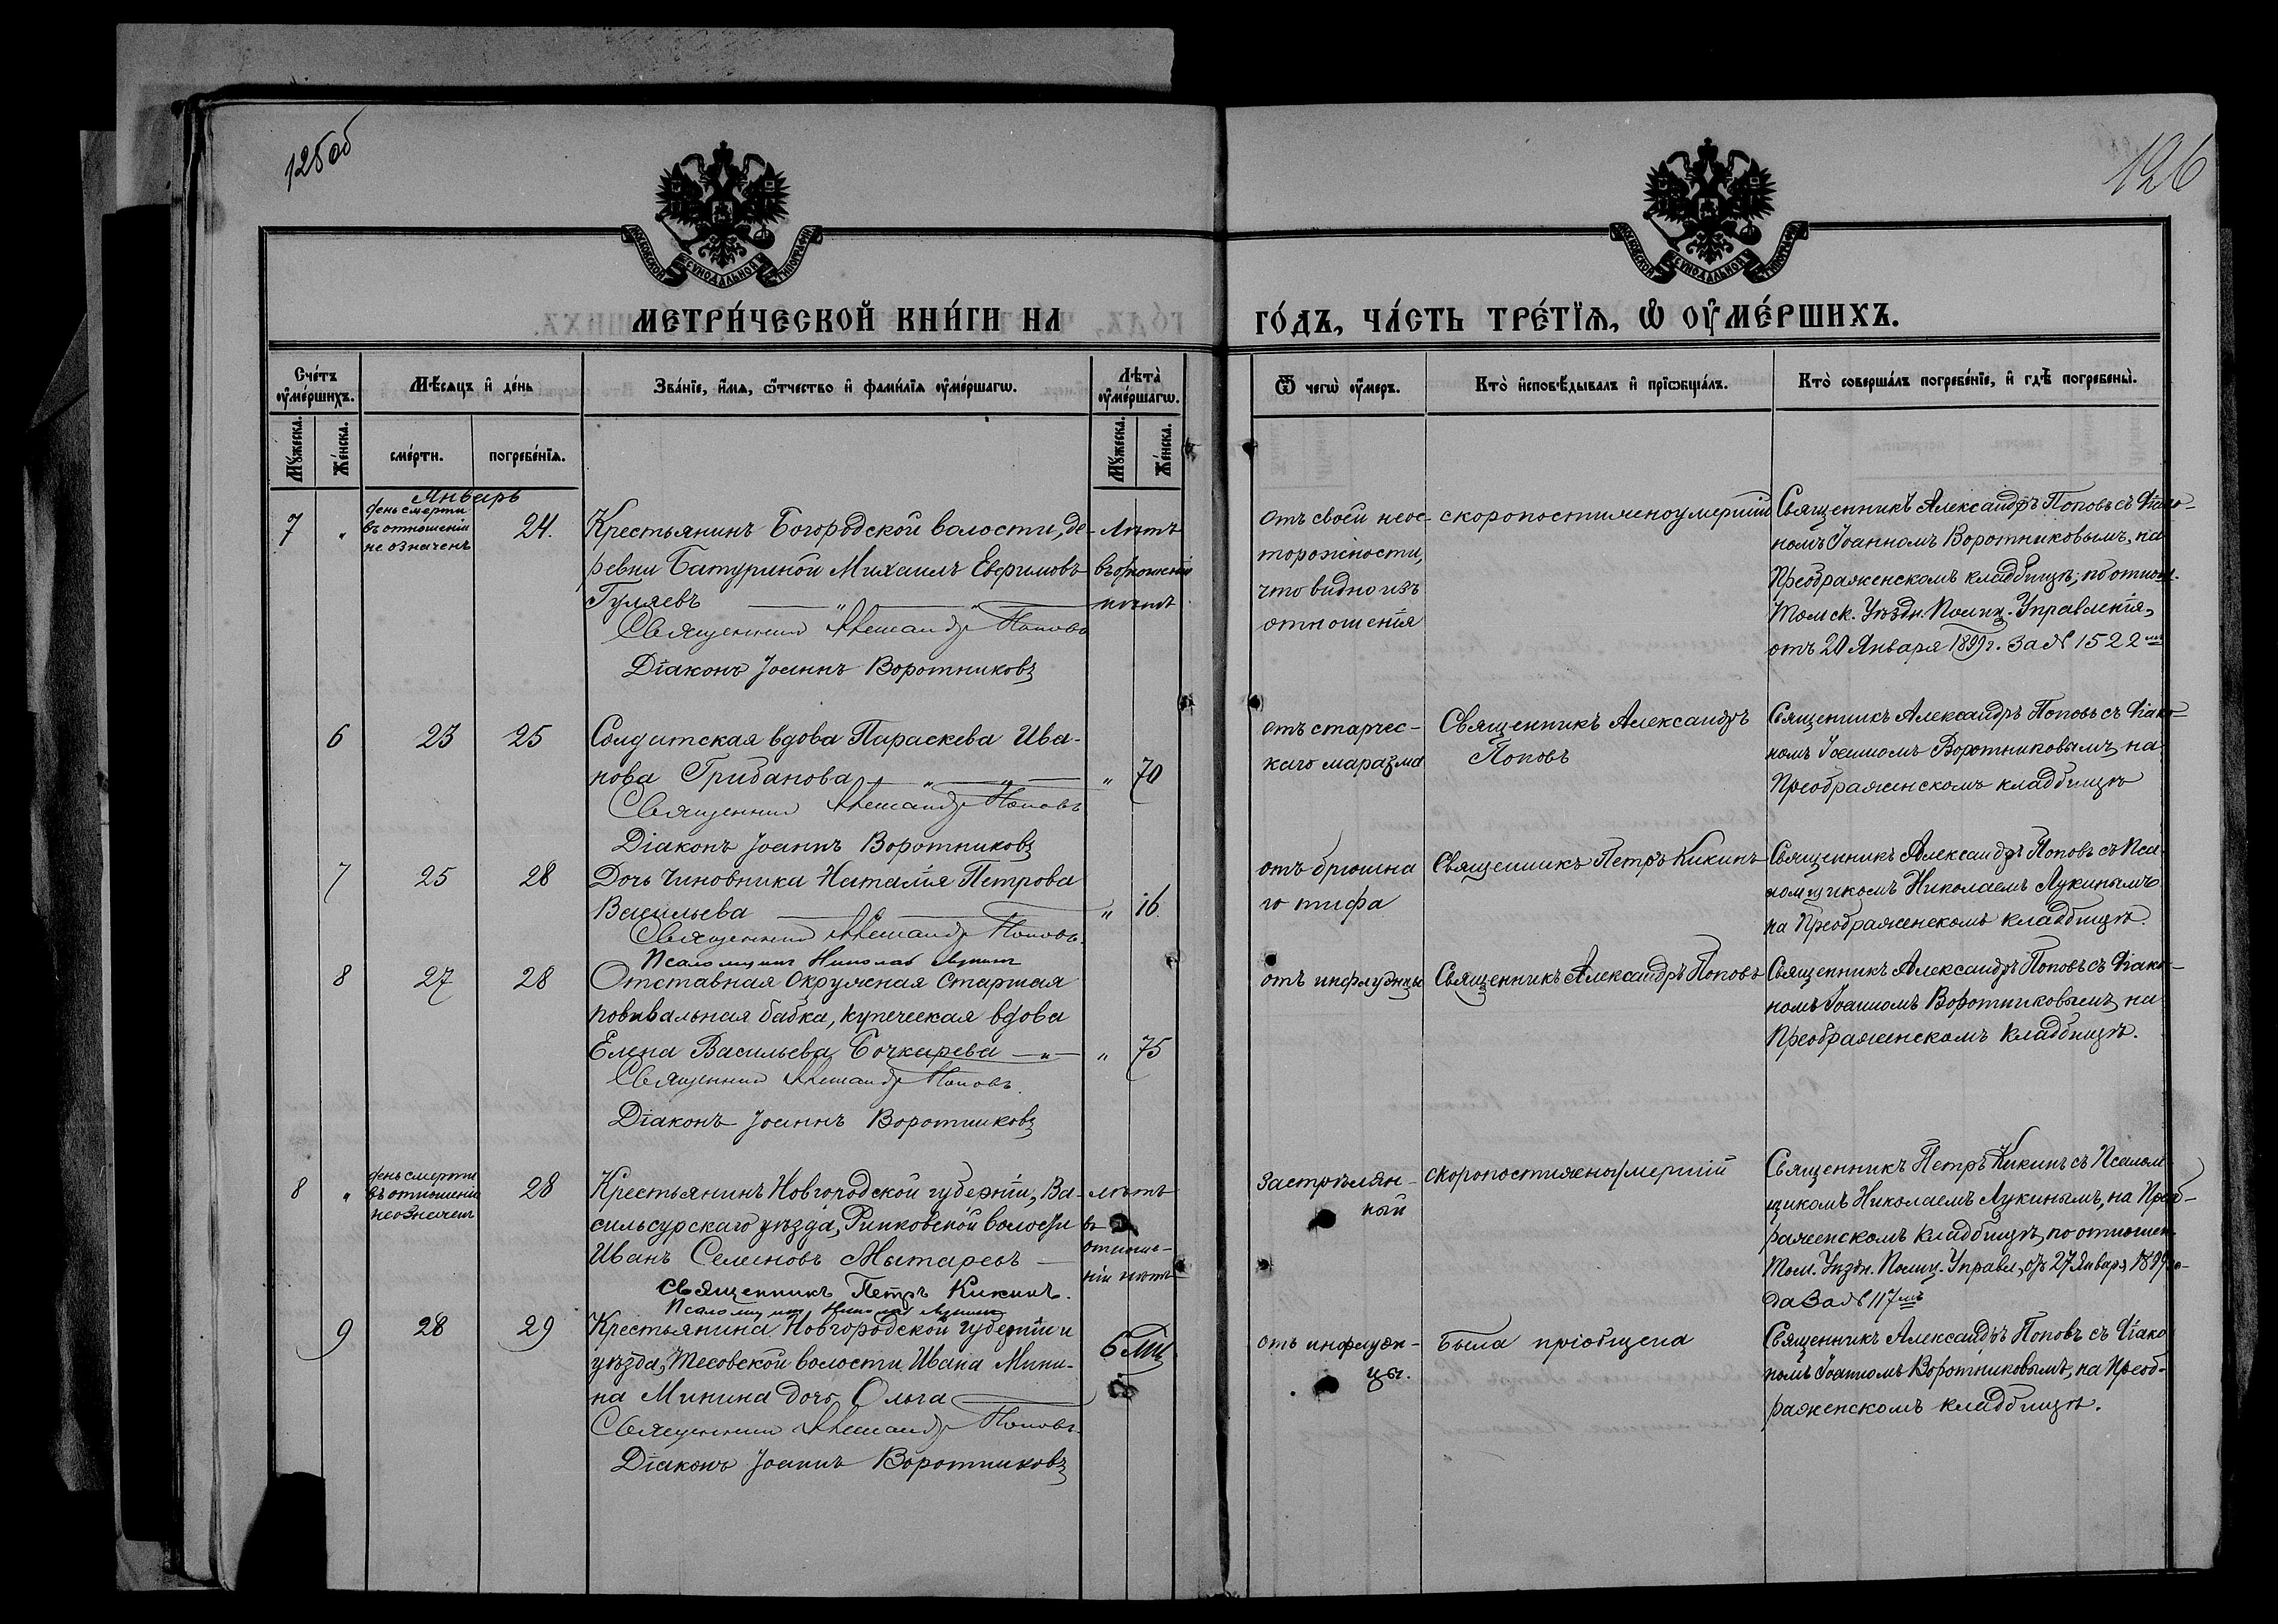 125 об
126
МОСКОВСКОЙ СѴНОДАЛЬНОЙ ТИПОГРАФІИ
МОСКОВСКОЙ СѴНОДАЛЬНОЙ ТИПОГРАФІИ
МЕТРИ́ЧЕСКОЙ КНИ́ГИ НА
ГО́ДЪ, ЧА́СТЬ ТРЕ́ТЇѦ, Ѡ ОУ҆МЕ́РШИХЪ.
Сче́тъ оу҆ме́ршихъ.
Мꙋ́жеска.
Же́нска.
Мѣ́сѧцъ и҆ де́нь
сме́рти.
погребе́нїѧ.
Зва́нїе, и҆́мѧ, ѻ҆́тчество и҆ фами́лїѧ оу҆ме́ршагѡ.
Лѣ́та оу҆ме́ршагѡ.
Мꙋ́жеска.
Же́нска.
Ѿ чегѡ̀ оу҆́меръ.
Кто̀ и҆сповѣ́дывалъ и҆ прїѡбща́лъ.
Кто̀ соверша́лъ погребе́нїе, и҆ гдѣ̀ погребены̀.
Январь
7 "
день смерти
въ отношеніи
не означенъ
24.
Крестьянинъ Богородской волости, де-
ревни Батуриной Михаилъ Евфимовъ
Гуляевъ
Священникъ Александръ Поповъ
Діаконъ Іоаннъ Воротниковъ
лѣтъ
въ отношеніи
нѣтъ
отъ своей неос-
торожности,
что видно изъ
отношенія
скоропостижноумершій
Священникъ Александръ Поповъ съ Діако-
номъ Іоанномъ Воротниковымъ, на
Преображенскомъ кладбищѣ; по отнош.
Томск. Уѣздн. Полиц. Управленія,
отъ 20 Января 1899 г. За № 1522мъ
6
23
25
Солдатская вдова Параскева Ива-
нова Грибанова
Священникъ Александръ Поповъ
Діаконъ Іоаннъ Воротниковъ
" 70
отъ старчес-
каго маразма
Священникъ Александръ
Поповъ
Священникъ Александръ Поповъ съ Діако-
номъ Іоанномъ Воротниковымъ на
Преображенскомъ кладбищѣ
7
25
28
Дочь Чиновника Наталія Петрова
Васильева
Священникъ Александръ Поповъ.
Псаломщикъ Николай Лукинъ
" 16
отъ брюшна
го тифа
Священникъ Петръ Кикинъ
Священникъ Александръ Поповъ съ Пса-
ломщикомъ Николаемъ Лукинымъ
на Преображенскомъ кладбищѣ.
8
27
28
Отставная Окружная Старшая
повивальная бабка, купеческая вдова
Елена Васильева Бочкарева
Священникъ Александръ Поповъ.
Діаконъ Іоаннъ Воротниковъ
" 75
отъ инфлуэнцы
Священникъ Александръ Поповъ
Священникъ Александръ Поповъ съ Діако-
номъ Іоанномъ Воротниковымъ на
Преображенскомъ кладбищѣ.
8 "
день смерти
въ отношеніи
не означенъ
28
Крестьянинъ Новгородской губерніи, Ва-
сильсурскаго уѣзда, Ринковской волости
Иванъ Семеновъ Мытаревъ
Священникъ Петръ Кикинъ.
Псаломщикъ Николай Лукинъ
лѣтъ
въ
отноше-
ніи нѣтъ
Застрѣлян-
ный
скоропостижноумершій
Священникъ Петръ Кикинъ съ Псалом-
щикомъ Николаемъ Лукинымъ, на Преоб-
раженскомъ кладбищѣ, по отношен.
Том. Уѣздн. Полиц. Управл., отъ 27 Января 1899 го-
да За № 117мъ
9
28
29
Крестьянина Новгородской губерніи и
уѣзда, Тесовской волости Ивана Мини-
на Минина дочь Ольга
Священникъ Александръ Поповъ.
Діаконъ Іоаннъ Воротниковъ
6 мц
отъ инфлуэн-
цы.
Была пріобщена
Священникъ Александръ Поповъ съ Діако
номъ Іоанномъ Воротниковымъ, на Преоб-
раженскомъ кладбищѣ.